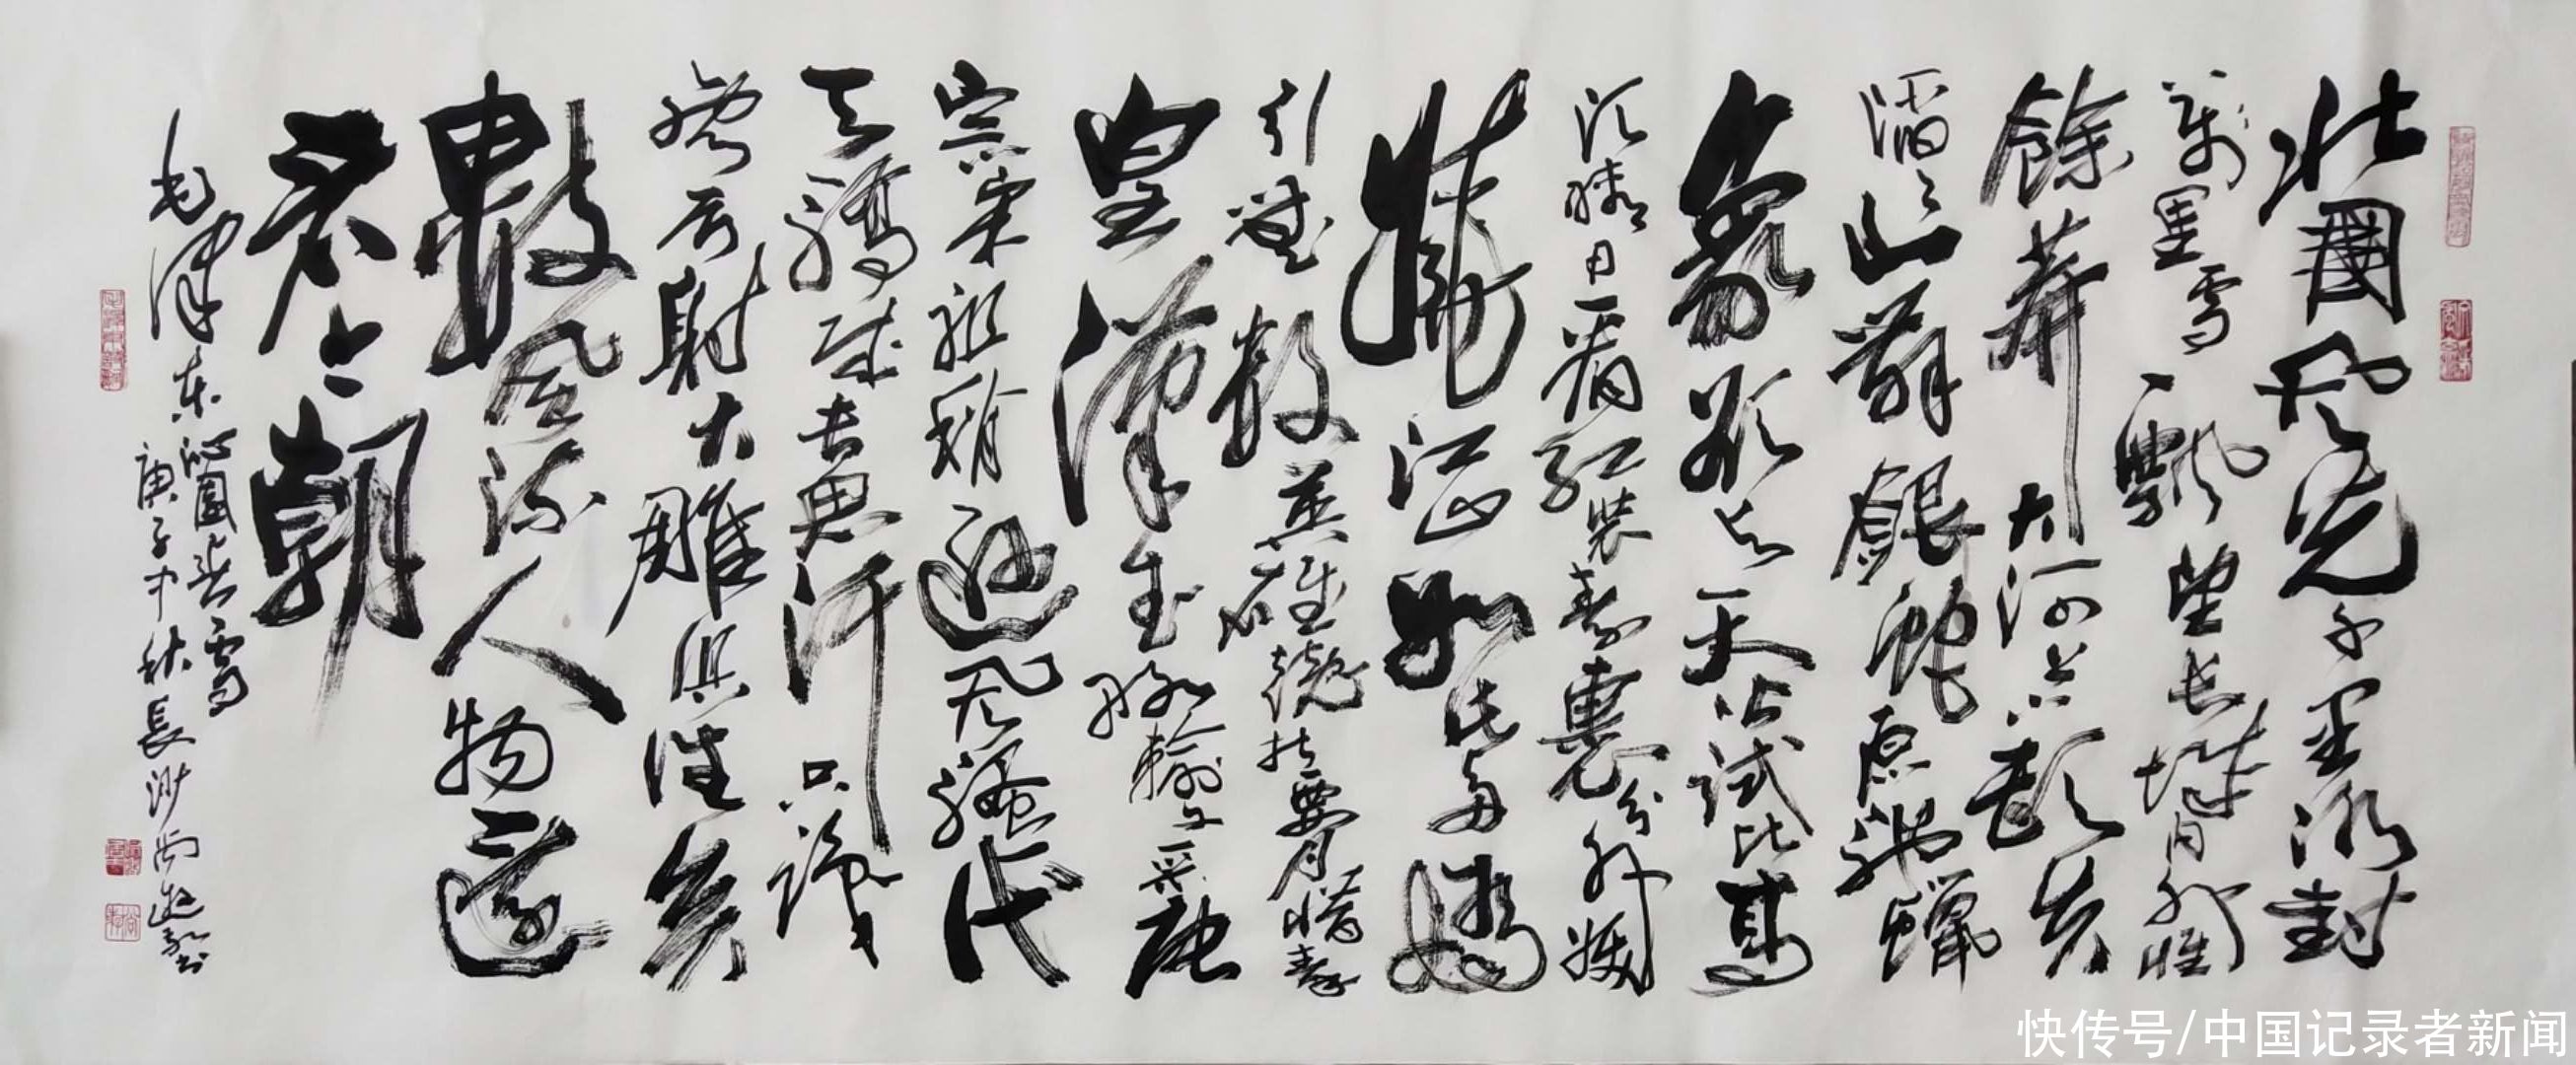 北國風光千里冰封
萬里雪飄望長城内外惟
餘莽大河上下頓失
滔滔山舞銀蛇原馳蠟
象欲與天公試比高
須晴日看紅裝素裹分外妖
嬈江山如此多嬌
引無數英雄競折腰惜秦
皇漢武略輸文采唐
宗宋祖稍遜風騷一代
天驕成吉思汗只識
彎弓射大雕俱往矣
數風流人物還
看今朝
毛澤東沁園春雪
庚子中秋長沙尚書
快传号/中国记录者新闻